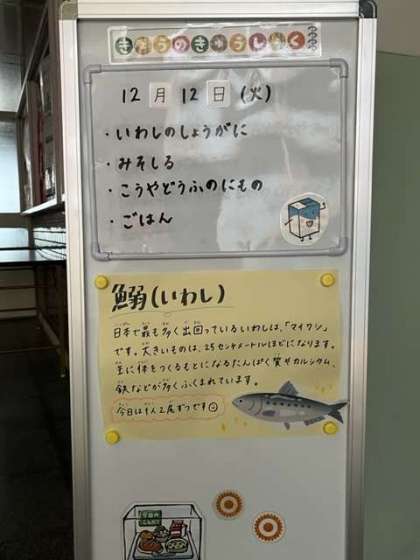 きょうのきゅうしょく
12月12日(火)
・いわしのしょうがに
・みそしる
・こうやどうふのにもの
・ごはん
鰯(いわし)
日本で最も多く出回っているいわしは、「マイワシ」
です。大きいものは、25センチメートルほどになります。
主に体をつくるもとになるたんぱく質やカルシウム、
鉄などが多くふくまれています。
今日は1人2尾ずつです